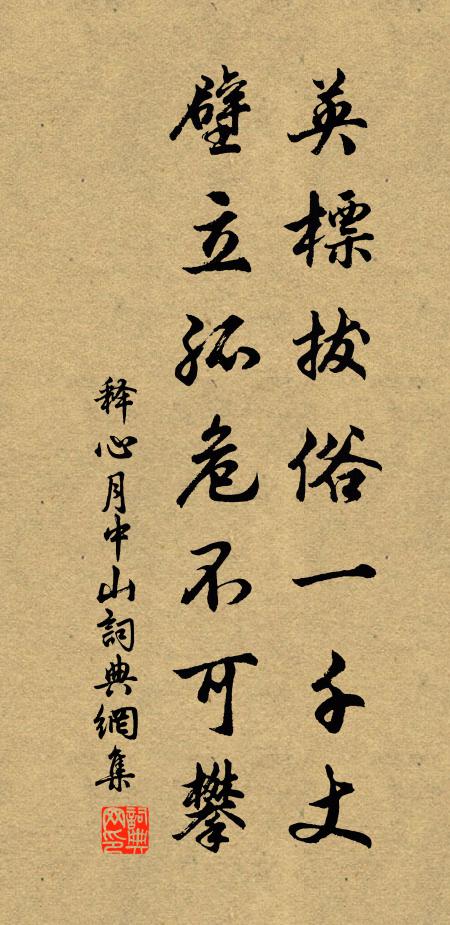 英標拔俗一千丈
壁立孤危不可攀
释心月中山詞典網集
詞典网印